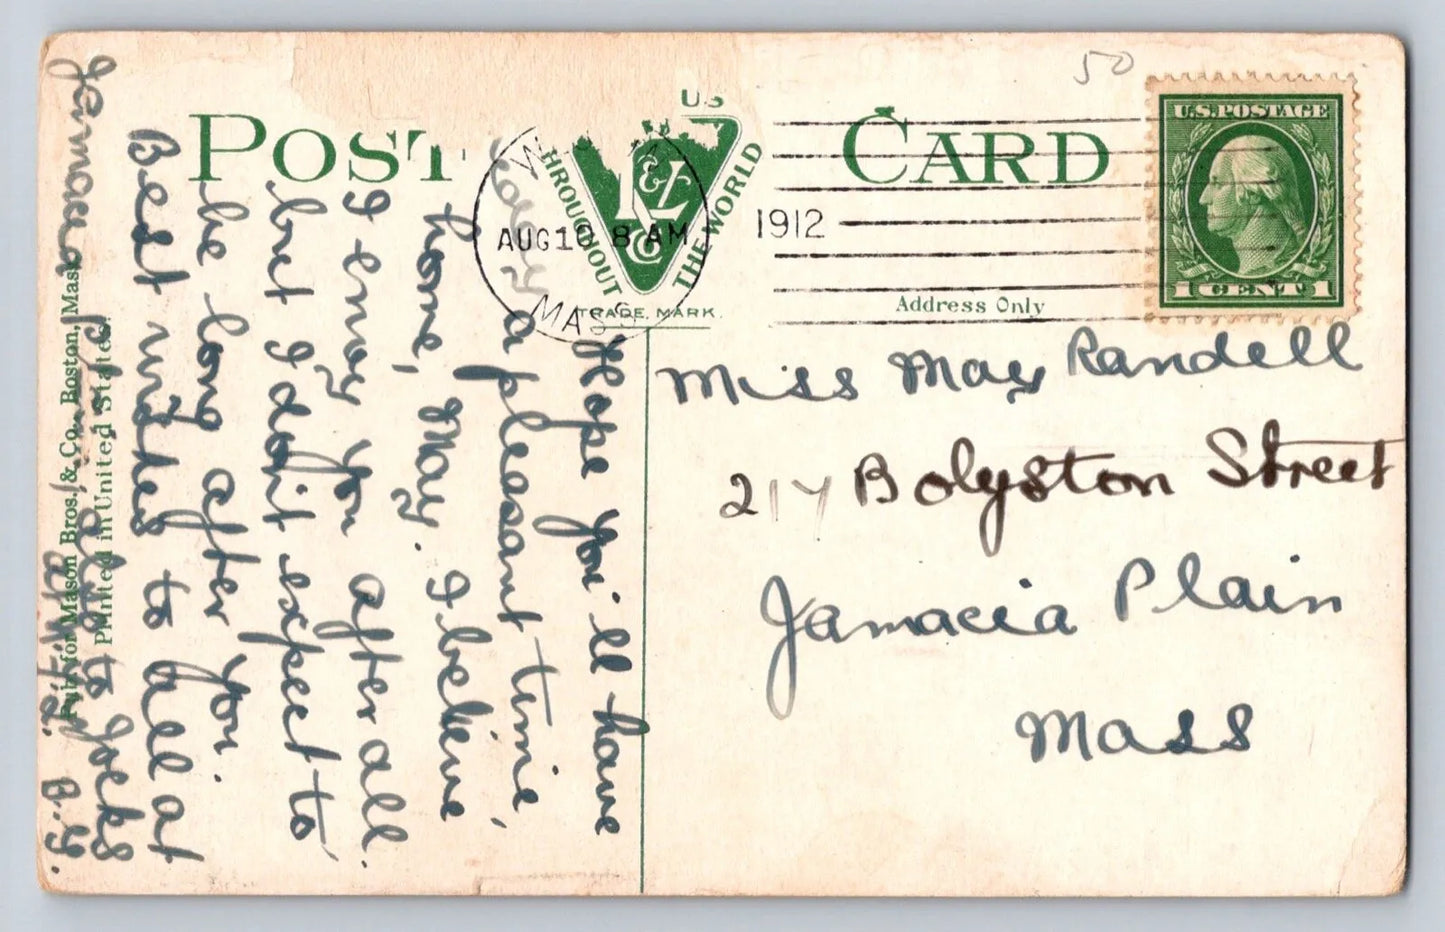 50
POST CARD
U.S. POSTAGE
1 CENT 1
US
THROUGHOUT THE WORLD
R & L Co
TRADE MARK.
AUG 10 8 AM
1912
MASS
Address Only
Miss May Randell
217 Bolyston Street
Jamacia Plain
Mass
Hope you'll have
a pleasant time,
home, May. I believe
I envy you after all.
but I don't expect to
be long after you.
Best wishes to all at
Jamacia plain, also to Jocks
B.G.
Publ for Mason Bros. & Co., Boston, Mass.
Printed in United States